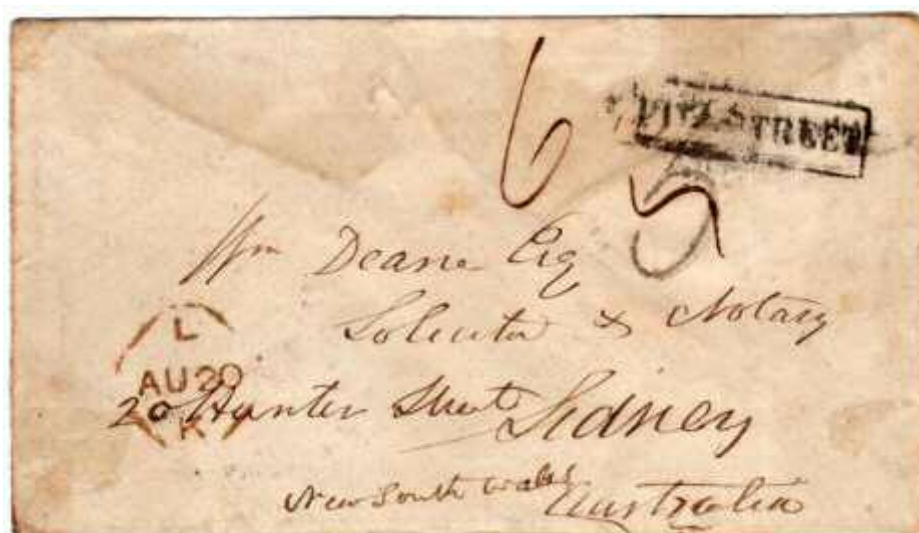 6
STREET
5
Wm Deane Esq
Solicitor & Notary
L
AU 20
K
20 Hunter Street Sidney
New South Wales Australia